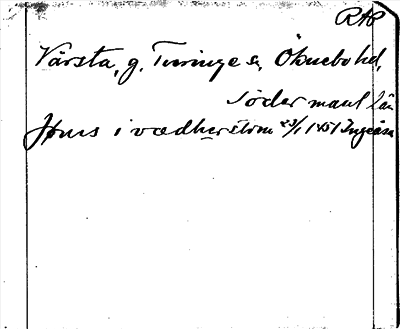 RAP
Vårsta, g. Turinge sn, Öknebo hd,
Södermanl län
Jöns i vædherstom 23/1 1451